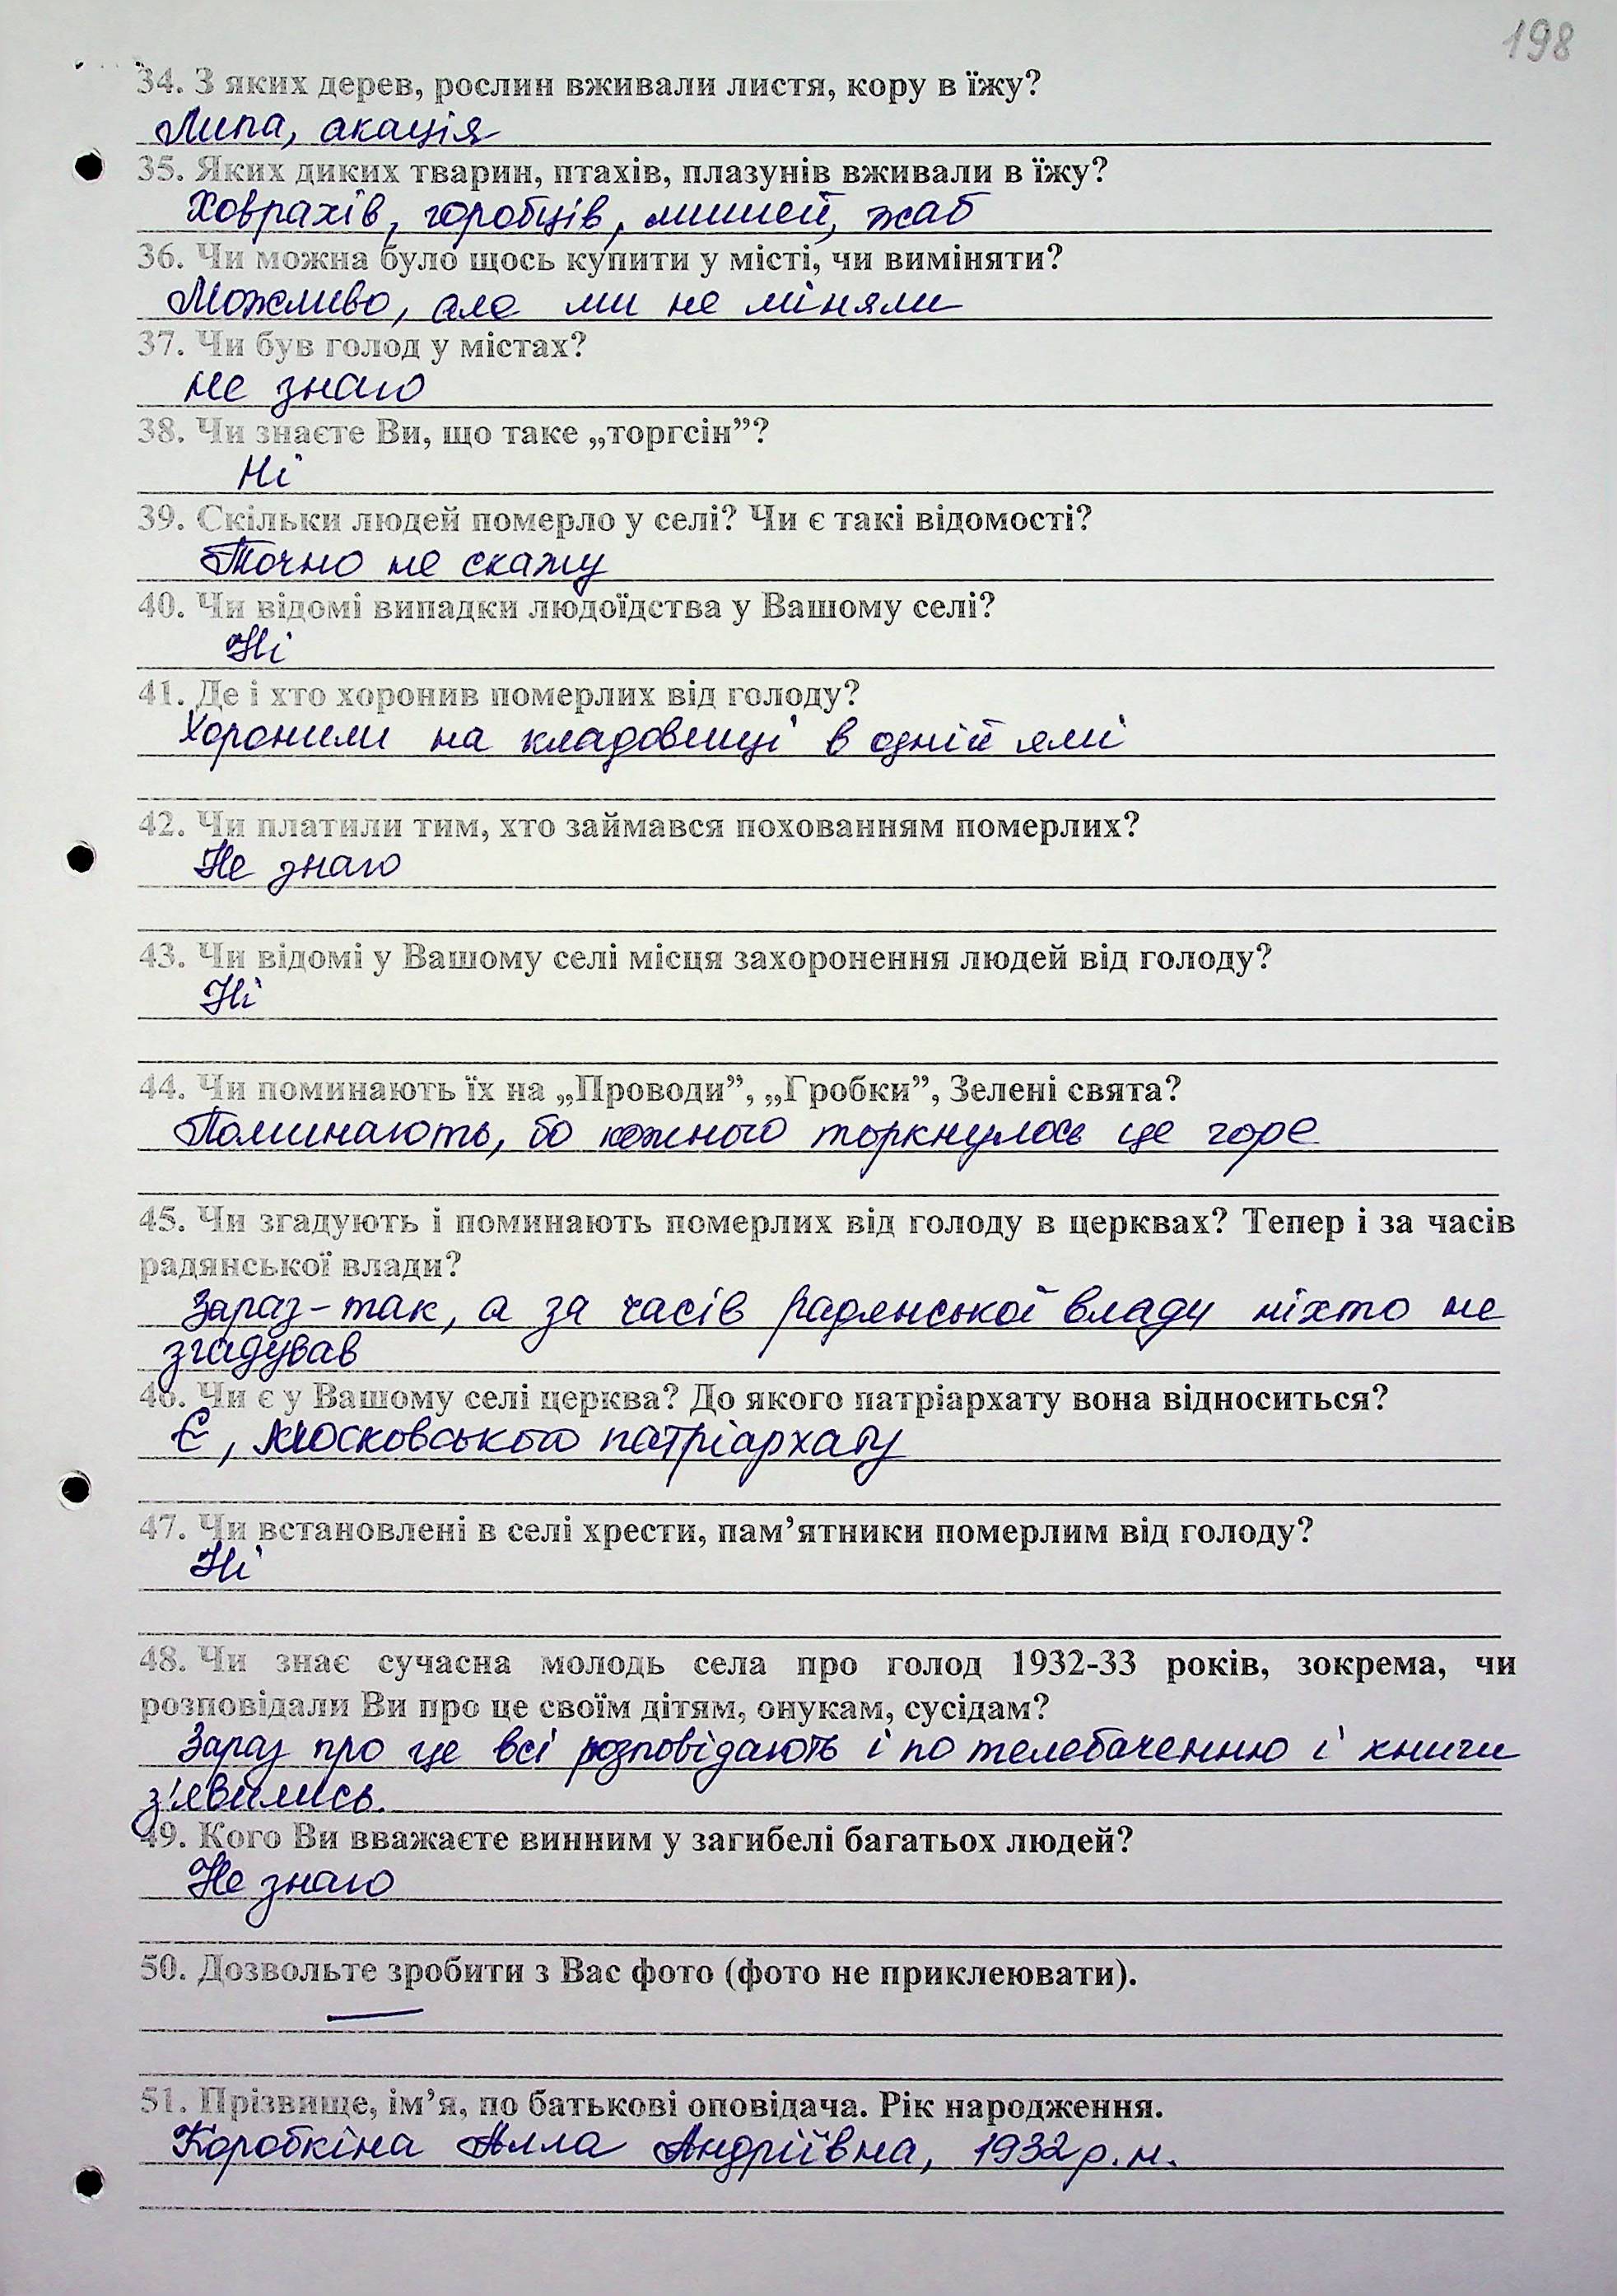 198
34. З яких дерев, рослин вживали листя, кору в їжу?
Липа, акація
35. Яких диких тварин, птахів, плазунів вживали в їжу?
Ховрахів, горобців, мишей, жаб
36. Чи можна було щось купити у місті, чи виміняти?
Можливо, але ми не міняли
37. Чи був голод у містах?
не знаю
38. Чи знаєте Ви, що таке „торгсін”?
Ні
39. Скільки людей померло у селі? Чи є такі відомості?
Точно не скажу
40. Чи відомі випадки людоїдства у Вашому селі?
Ні
41. Де і хто хоронив померлих від голоду?
Хоронили на кладовищі в одній ямі
42. Чи платили тим, хто займався похованням померлих?
Не знаю
43. Чи відомі у Вашому селі місця захоронення людей від голоду?
Ні
44. Чи поминають їх на „Проводи”, „Гробки”, Зелені свята?
Поминають, бо кожного торкнулось це горе
45. Чи згадують і поминають померлих від голоду в церквах? Тепер і за часів
радянської влади?
Зараз - так, а за часів радянської владу ніхто не
згадував
46. Чи є у Вашому селі церква? До якого патріархату вона відноситься?
Є, Московського патріархату
47. Чи встановлені в селі хрести, пам’ятники померлим від голоду?
Ні
48. Чи знає сучасна молодь села про голод 1932-33 років, зокрема, чи
розповідали Ви про це своїм дітям, онукам, сусідам?
Зараз про це всі розповідають і по телебаченню і книги
з'явились.
49. Кого Ви вважаєте винним у загибелі багатьох людей?
Не знаю
50. Дозвольте зробити з Вас фото (фото не приклеювати).
—
51. Прізвище, ім’я, по батькові оповідача. Рік народження.
Коробкіна Алла Андріївна, 1932 р.н.